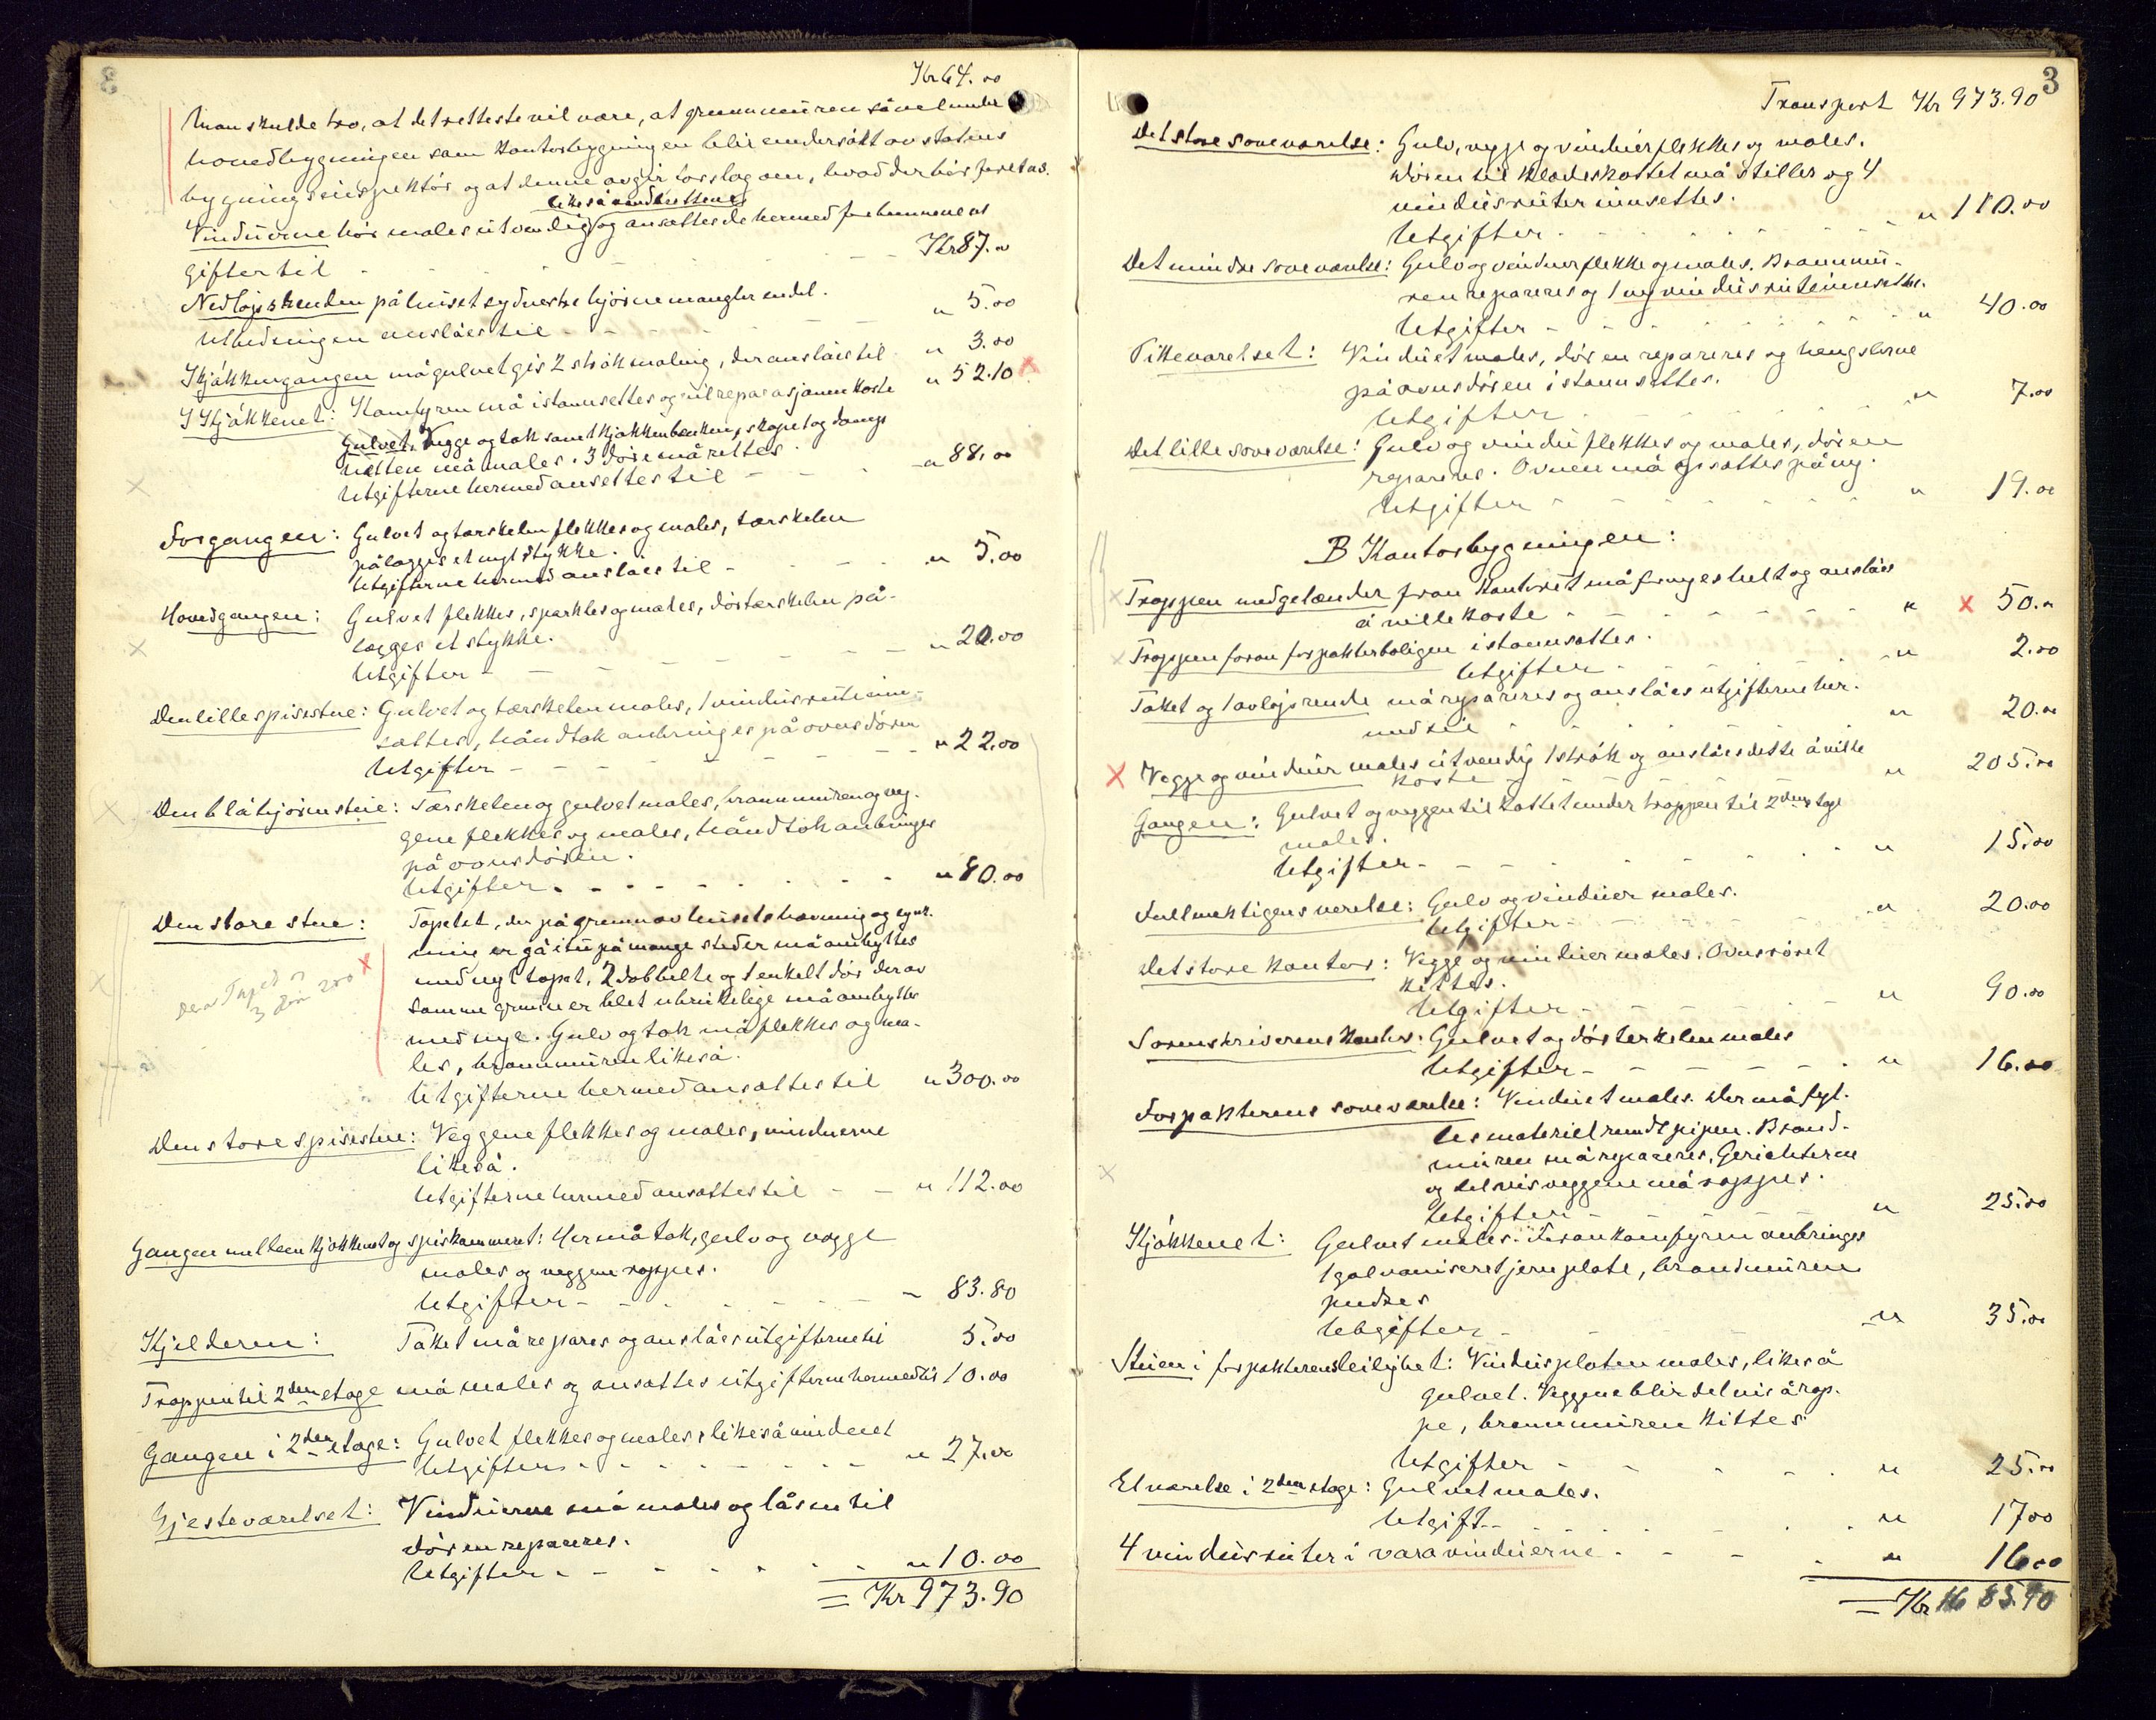 Kr 64.00
Man skulde tro, at det retteste vil være, at grunnmuren såvel under
hovedbygningen som kontorbygningen blir undersøkt av statens
bygningsinspektør og at denne avgir forslag om, hvad der bør foretas.
likeså vindskottene
Vinduerne bør males utvendig og ansættes de hermed forbunnene ut
gifter til - - - - - - Kr 87.00
Nedløpsrenden på huset sydvestre hjørne mangler endel.
Utbedringen anslåes til - - - - " 5.00
I Kjøkkengangen må gulvet gis 2 strøk maling, der anslåes til " 3.00
I Kjøkkenet: Komfyren må istannsettes og vil reparasjonen koste " 52.10
Gulvet, Vegge og tak samt kjøkkenbenken, skapet og damp
hetten må males. 3 døre må rettes.
Utgifterne hermed ansettes til - - - " 88.00
Forgangen: Gulvet og tærskelen flekkes og males, tærskelen
pålægges et nyt stykke.
Utgifterne hermed anslåes til - - - " 5.00
Hovedgangen: Gulvet flekkes, sparkles og males, dørtærskelen på-
lægges et stykke.
Utgifter - - - - - - " 20.00
Den lille spisestue: Gulvet og tærskelen males, 1 vindusrute inn-
sættes, håndtak anbringes på ovnsdøren
Utgifter - - - - - - " 22.00
Den blå hjørnestue: Tærskelen og gulvet males, brannmuren og veg-
gene flekkes og males, håndtak anbringes
på ovnsdøren.
Utgifter - - - - - - " 80.00
Den store stue: Tapetet, der på grunn av husets hævning og synk-
ning er gåt itu på mange steder må ombyttes
med nyt tapet, 2 dobbelte og 1 enkelt dør der av
samme grunn er blet ubrukelige må ombyttes
med nye. Gulv og tak må flekkes og ma-
les, brannmuren likeså.
Utgifterne hermed ansættes til " 300.00
Den store spisestue: Veggene flekkes og males, vinduerne
likeså.
Utgifterne hermed ansættes til - - " 112.00
Gangen mellem kjøkkenet og spiskammeret: Her må tak, gulv og vegge
males og veggene rappes.
Utgifter - - - - - - " 83.80
Kjelderen: Taket må repares og anslåes utgifterne til 5.00
Trappen til 2den etage må males og ansættes utgifterne hermed til 10.00
Gangen i 2den etage: Gulvet flekkes og males, likeså vinduet
Utgifter - - - - - - " 27.00
Gjesteværelset: Vinduerne må males og låsen til
døren repareres.
Utgifter - - - - - " 10.00
= Kr 973.90
3
Transport Kr 973.90
Det store soveværelse: Gulv, vegge og vinduer flekkes og males.
Døren til klædeskottet må stilles og 4
vindusruter innsettes.
Utgifter - - - - - - " 110.00
Det mindre soveværelse: Gulv og vinduer flekke og males. Brannmu-
ren repareres og 1 ny vindusrute innsettes.
Utgifter - - - - - - " 40.00
Pikeværelset: Vinduet males, døren repareres og hengslerne
på ovnsdøren istannsettes.
Utgifter - - - - - - " 7.00
Det lille soveværelse: Gulv og vindu flekkes og males, døren
repareres. Ovnen må opsættes på ny.
Utgifter - - - - - - " 19.00
B Kontorbygningen:
Trappen med gelænder foran kontoret må fornyes helt og anslåes
å ville koste - - - - - - " 50.00
Trappen foran forpakterboligen istannsettes.
Utgifter - - - - - " 2.00
Taket og 1 avløpsrende må repareres og anslåes utgifterne her-
med til - - - - - - " 20.00
Vegge og vinduer males utvendig 1 strøk og anslåes dette å ville
koste " 205.00
Gangen: Gulvet og veggen til kottet under trappen til 2den etage
males.
Utgifter - - - - - - " 15.00
Fullmektigens værelse: Gulv og vinduer males.
Utgifter - - - - - " 20.00
Det store kontor: Vegge og vinduer males. Ovnsrøret
kittes.
Utgifter - - - - - - " 90.00
Sorenskriverens kontor: Gulvet og dørterkelen males
Utgifter - - - - - - " 16.00
Forpakterens soveværelse: Vinduet males. Der må fyl-
les materiel rundt pipen. Brand-
muren må repareres. Gerichterne
og delvis veggene må rappes.
Utgifter - - - - - " 25.00
Kjøkkenet: Gulvet males. Foran komfyren anbringes
1 galvaniseret jernplate, brandmuren
pudses
Utgifter - - - - - " 35.00
Stuen i forpakterens leilighet: Vindusplaten males, likeså
gulvet. Veggene blir delvis å rap-
pe, brannmuren kittes
Utgifter - - - - - " 25.00
Et værelse i 2den etage: Gulvet males.
Utgift - - - - - - " 17.00
4 vindusruter i varavinduerne - - - - " 16.00
= Kr 1685.90